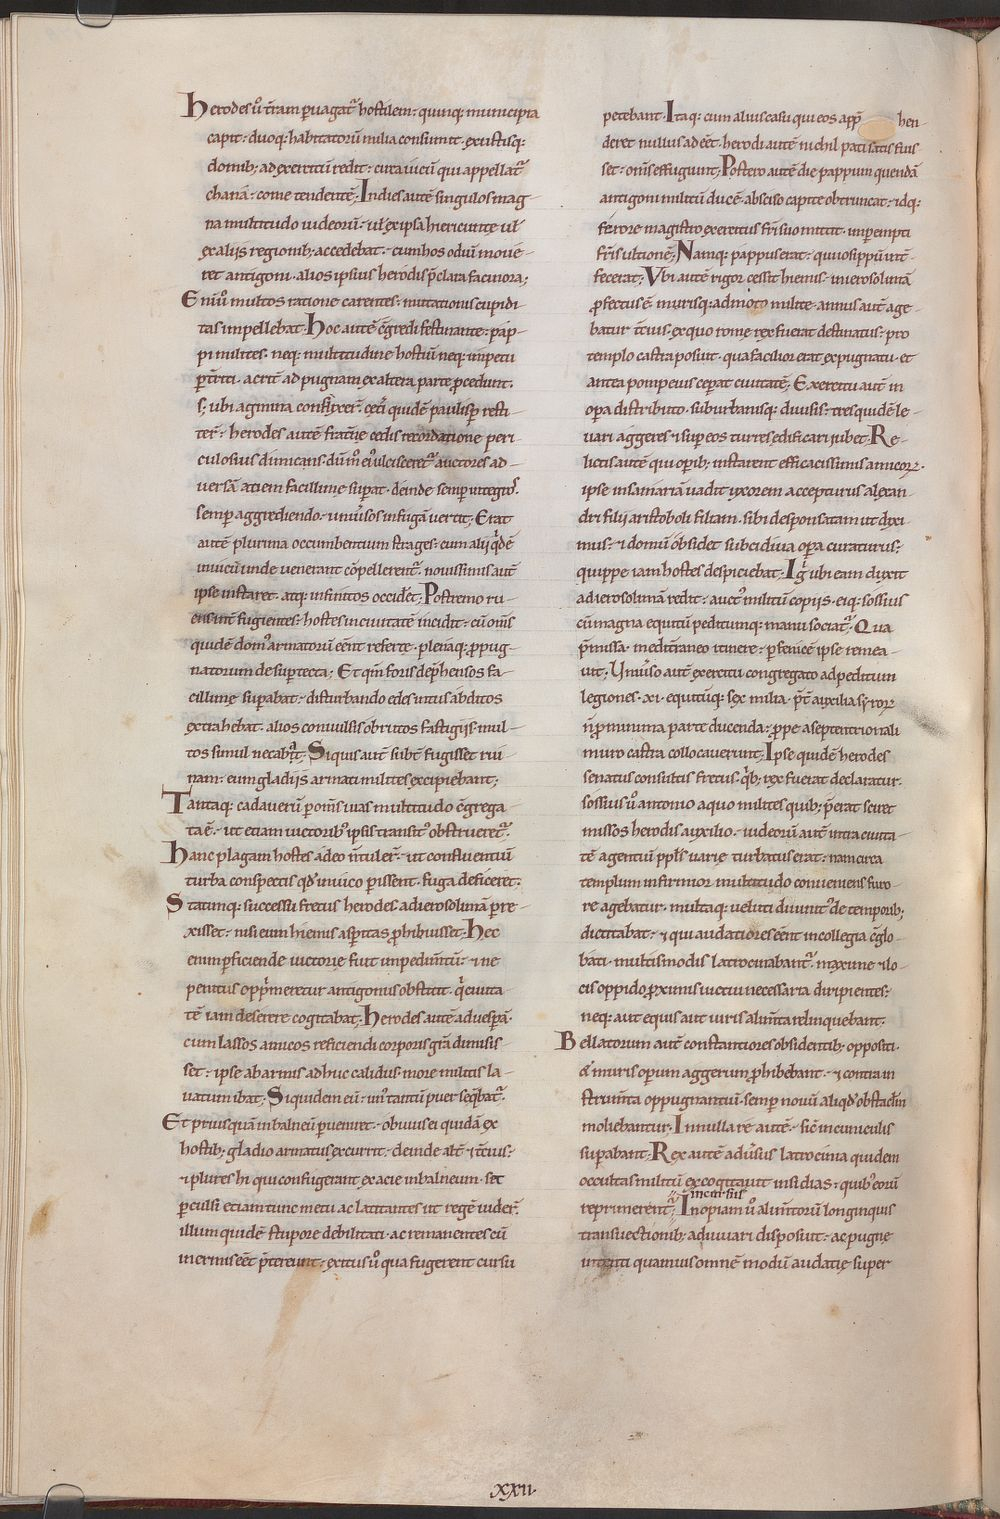 Herodes ů t̄ram ꝑuagat᷑ hostilem· quinq; municipia
capit· duoq; habitatorū milia consumit· exustisq;
domib; ad exercitū redit· circa uicū qui appellat᷑
chana· come tendente; Indies autē singulos mag-
na multitudo iudeorū· uł ex ipsa hiericunte uł
ex alijs regionib; accedebat· cum hos odiū moue-
ret antigoni· alios ipsius herodis p̄clara facinora;
Enīů multos ratione carentes· mutationis cupidi-
tas impellebat· Hoc autē c̄gredi festinante· pap-
pi milites· neq; multitudine hostiū neq; impetu
ꝑt̄riti· acrit̄ ad pugnam ex altera parte ꝓcedunt·
s; ubi agmina conflixer̄· cet̄i quidē paulisꝑ resti-
ter̄· herodes autē frat̄ne cedis recordatione peri-
culosius dimicans· dūm̄ eı᷒ ulcisceret᷑ auctores ad-
uersā aciem facillime suꝑat· deinde semꝑ integro᷒·
semꝑ aggrediendo· uniůsos in fugā uertit; Erat
autē plurima occumbentium strages· cum alij q̇dē
in uicū unde uenerant cōpellerent᷑· nouissimis aut̄
ipse instaret· atq; infinitos occidet; Postremo ru-
ens int̄ fugientes· hostes in ciuitatē incidit· cū om̄s
quidē dom᷒ armatorū eēnt referte· plenaq; ꝓpug-
natorum desup tecta; Et qm̄ foris dep̄hensos fa-
cillime suꝑabat· disturbando edes intus abditos
extrahebat· alios conuulsis obrutos fastigijs· mul-
tos simul necabat; Siquis aut̄ subt̄ fugisset rui-
nam· eum gladijs armati milites excipiebant;
Tantaq; cadauerū ꝑ om̄s uias multitudo c̄grega-
ta ē· ut etiam uictorib᷒ ipsis transit᷒ obstrueret᷑·
Hanc plagam hostes adeo n̄ tuler̄· ut confluentiū
turba conspectis qd̄ in uico ꝑissent· fuga deficeret·
Statimq; successu fretus herodes ad ierosolimā ꝑre-
xisset· nisi eum hiemis asꝑitas ꝓhibuisset· Hec
enim ꝑficiende uictorie fuit impedim̄tū· & ne
penitus opp̄meretur antigonus obstitit· q̇ ciuita-
tē iam deserere cogitabat; Herodes autē ad uesꝑā·
cum lassos amicos reficiendi corporis gr̄a dimisis-
set· ipse ab armis adhuc calidus· more militis la-
uatum ibat; Siquidem eū un᷒ tantū puer seq̄bat᷑·
Et priusquā in balneū ꝑueniret· obuius ei quidā ex
hostib; gladio armatus excurrit· deinde alt̄ & t̄cius·
& plures· hi qui confugerant ex acie in balneum· set
ꝑculsi etiam tunc metu ac latitantes ut regē uider̄·
illum quidē stupore debilitati· ac remanentes cū
inermis eēt p̄tereunt· exitus ů qua fugerent cursu
petebant· Itaq; cum alius casu qui eos app̄ hen-
deret nullus adeēt· herodi autē nichil pati satis fuis-
set· om̄s effugiunt; Postero autē die pappum quendā
antigoni militū ducē· absciso capite obtruncat· idq;
ferore magistro exercitus fr̄i suo mittit· imꝑempti
fr̄is ultionē; Namq; pappus erat· qui iosippū int̄-
fecerat; Vbi autē rigor cessit hiemis· in ierosolimā
ꝓfectus ē· murisq; admoto milite· annus aut̄ age-
batur t̄cius· ex quo rome rex fuerat destinatus· pro
templo castra posuit· qua facilior erat expugnatu· et
antea pompeius ceperat ciuitatē; Exercitu aut̄ in
opera distributo· suburbanisq; diuisis· tres quidē le-
uari aggeres & suꝑ eos turres edificari iubet· Re-
lictis autē qui oꝑib; instarent efficacissimis amicoꝝ·
ipse in samariā uadit uxorem accepturus alexan-
dri filij aristoboli filiam· sibi desponsatam ut dixi-
mus· & domū obsidet subcidiua oꝑa curaturus·
quippe iam hostes despiciebat; Ig̑ ubi eam duxit
ad ierosolimā redit· auct᷒ militū copijs· eiq; sossius
cū magna equitū peditumq; manu sociat᷑· Qua
p̄missa· medit̄raneo itinere· ꝑ fenicē ipse remea-
uit; Vniůso autē exercitu congregato ad peditum
legiones· xi· equitūq; sex milia· p̄t̄ auxilia syroꝝ
n̄ ꝓ minima parte ducenda· ꝓpe a septentrionali
muro castra collocauerunt; Ipse quidē herodes
senatus consultis fretus· q̇b; rex fuerat declaratur·
sossius ů antonio a quo milites quib; p̄erat sciret
missos herodis auxilio· iudeorū aut̄ intra ciuita-
tē agentiū ppl̄s uarie turbatus erat· nam circa
templum infirmior multitudo conueniens furo-
re agebatur· multaq; ueluti diuinit᷒ de temporib;
dictitabat· & qui audatiores eēnt in collegia c̄glo-
bati· multismodis latrocinabant᷑· maxime & lo-
cis oppido ꝓximis uictui necessaria diripientes·
neq; aut equis aut uiris alim̄ta relinquebant·
Bellatorum aut̄ constantiores obsidentib; oppositi·
& muris operum aggerum ꝓhibebant· & contra in-
strum̄ta oppugnantiū· semꝑ nouū aliqd̄ obstaclm̄
moliebantur· In nulla re autē· sic̄ in cuniculis
superabant; Rex autē adůsus latrocinia quidem
occultas militū excogitauit insidias· quib᷒ eorū
incursus
reprimerent᷑; Inopiam ů alim̄torū longinquis
transuectionib; adiuuari disposuit· ac pugne
intenti quamuis omnē modū audatie super
xxii·